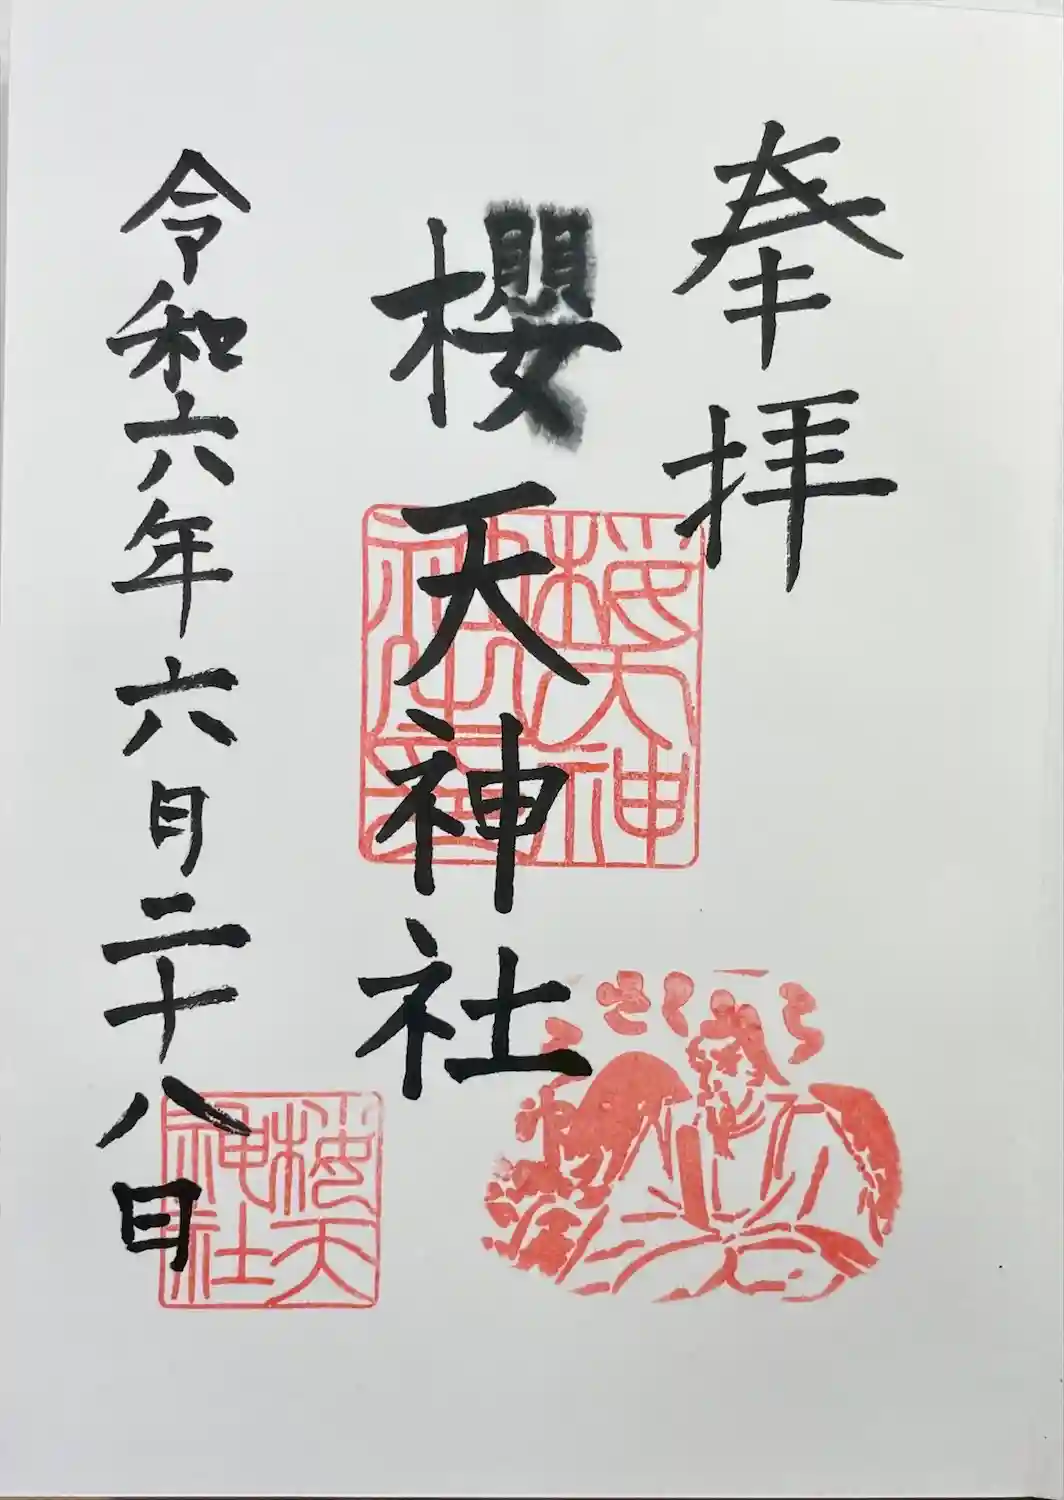 奉拝
櫻天神社
令和六年六月二十八日
桜天神社印
桜天神社